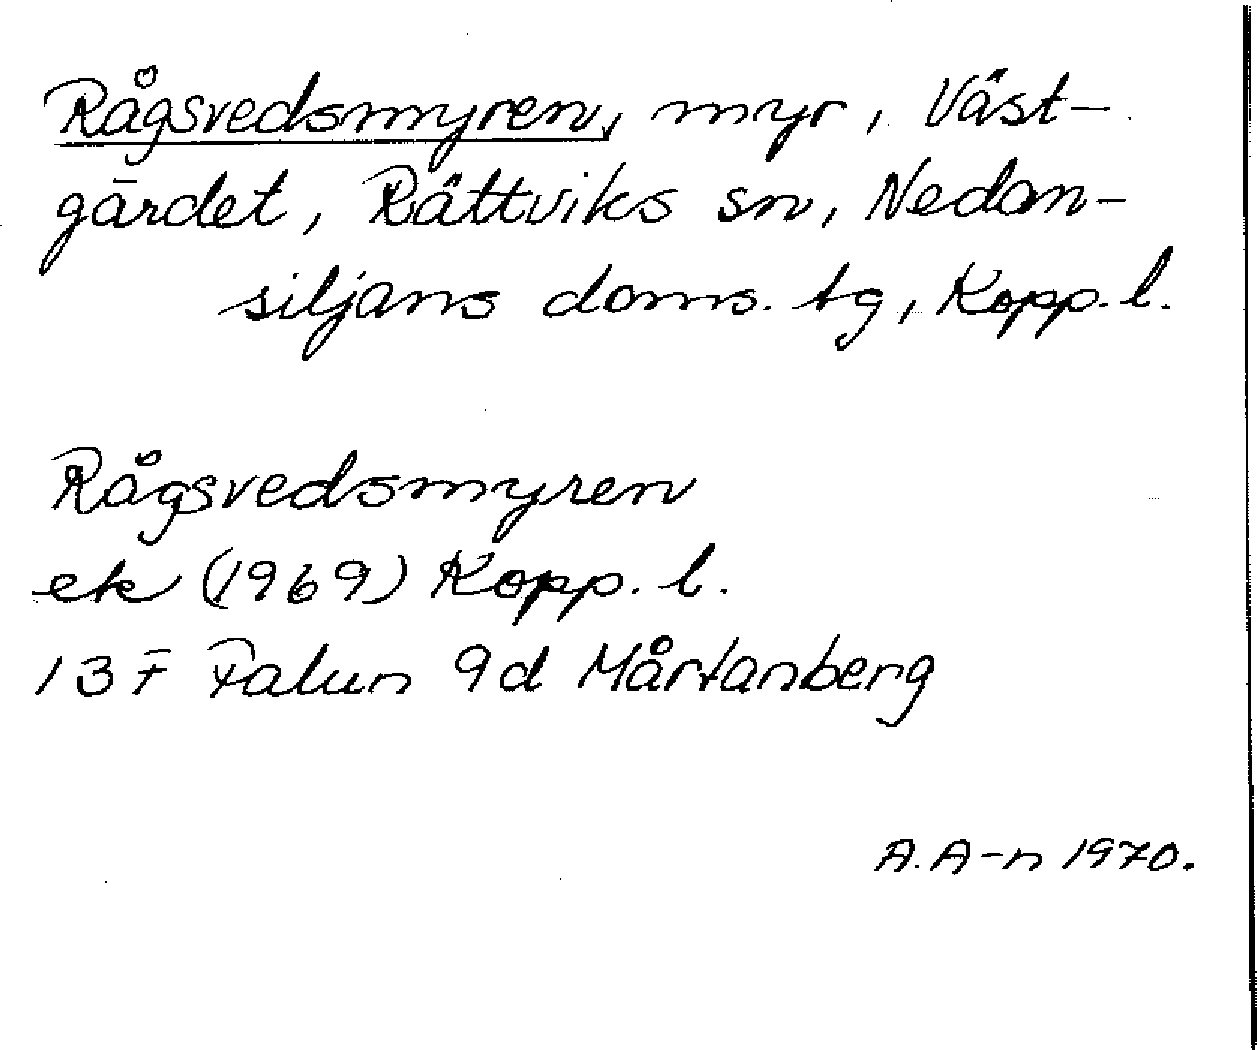 Rågsvedsmyren, myr, Väst-
gärdet, Rättviks sn, Nedan-
siljans doms. tg, Kopp. l.
Rågsvedsmyren
ek (1969) Kopp. l.
13F Falun 9d Mårtanberg
A. A-n 1970.